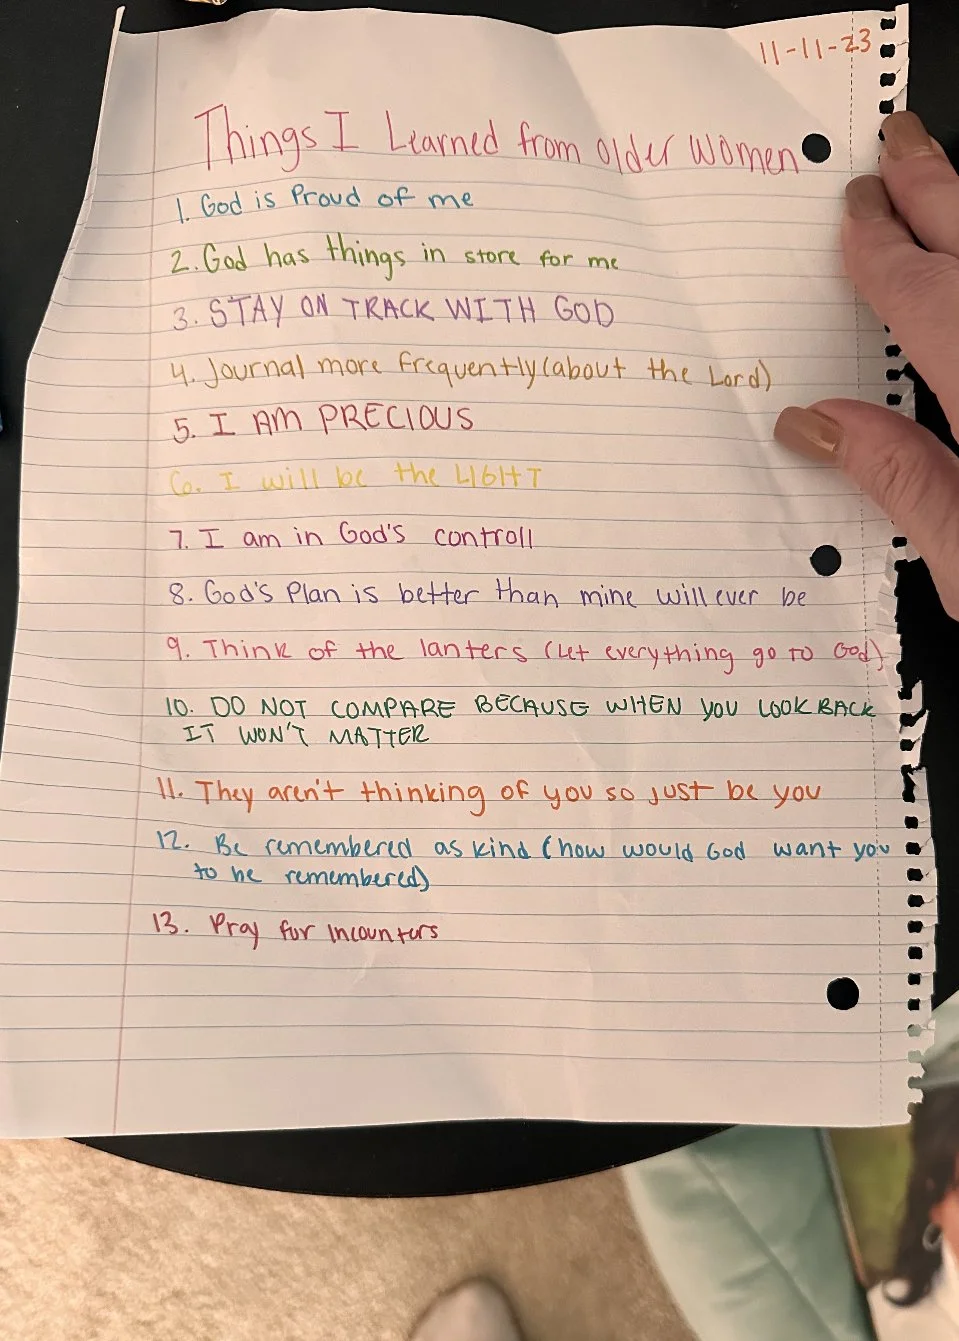 11-11-23
Things I Learned from older women
1. God is Proud of me
2. God has things in store for me
3. STAY ON TRACK WITH GOD
4. Journal more frequently (about the Lord)
5. I AM PRECIOUS
6. I will be the LIGHT
7. I am in God's controll
8. God's Plan is better than mine will ever be
9. Think of the lanters (Let everything go to God)
10. DO NOT COMPARE BECAUSE WHEN YOU LOOK BACK
IT WON'T MATTER
11. They aren't thinking of you so just be you
12. Be remembered as kind (how would God want you
to be remembered)
13. Pray for Incounters